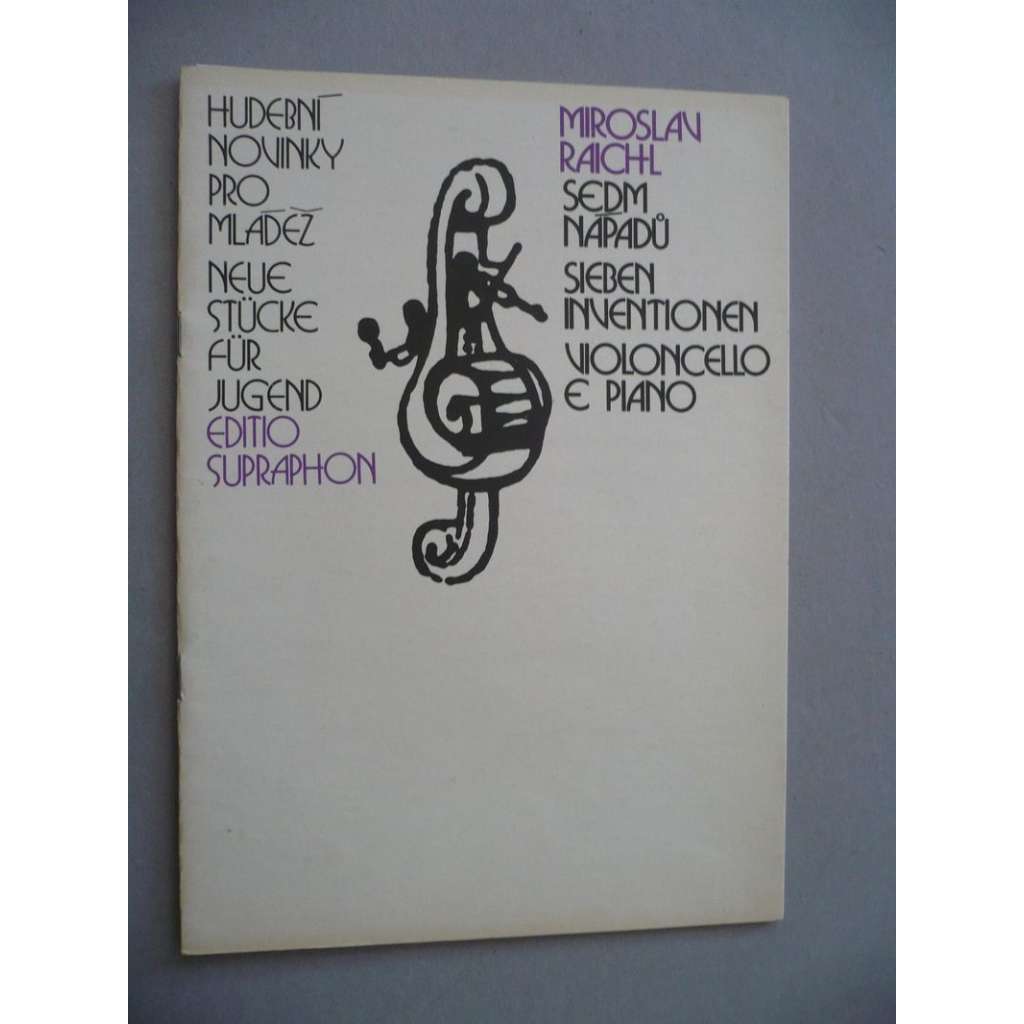 HUDEBNÍ
NOVINKY
PRO
MLÁDEŽ
NEUE
STÜCKE
FÜR
JUGEND
EDITIO
SUPRAPHON
MIROSLAV
RAICHL
SEDM
NÁPADŮ
SIEBEN
INVENTIONEN
VIOLONCELLO
E PIANO